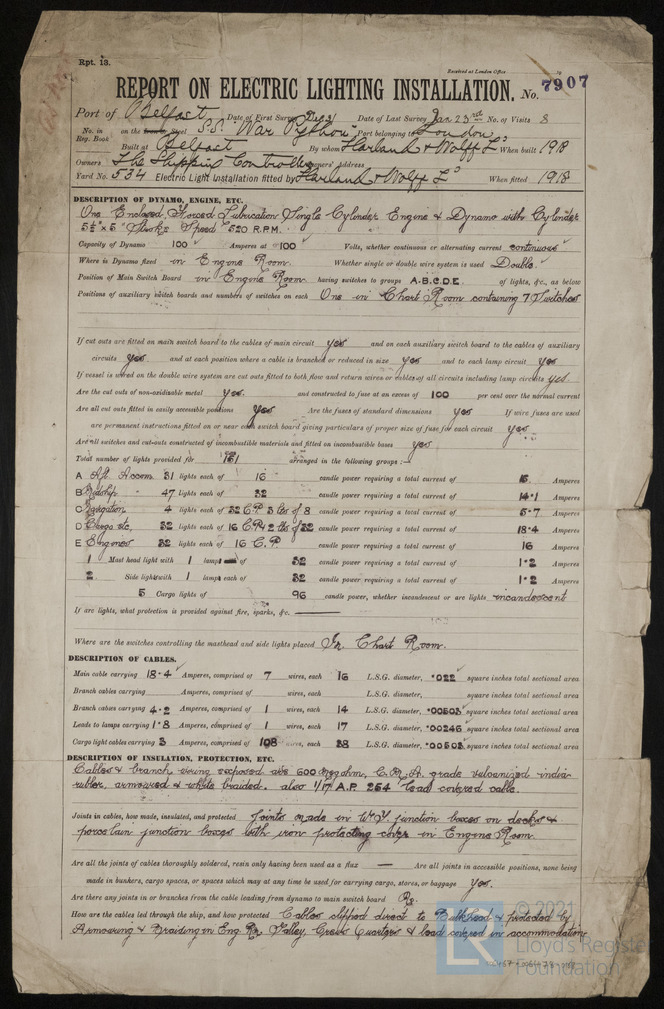 Rpt. 13.
Received at London Office
REPORT ON ELECTRIC LIGHTING INSTALLATION. No. 7907
Port of Belfast Date of First Survey Dec 31 Date of Last Survey Jan 23rd No. of Visits 8
No. in Reg. Book on the Steel S.S. "War Python" Port belonging to London
Built at Belfast By whom Harland & Wolff Ld When built 1918
Owners The Shipping Controller Owners' Address
Yard No. 534 Electric Light Installation fitted by Harland & Wolff Ld When fitted 1918
DESCRIPTION OF DYNAMO, ENGINE, ETC.
One Enclosed, Forced Lubrication Single Cylinder Engine & Dynamo with Cylinder
5½" x 5" Stroke Speed 520 R.P.M.
Capacity of Dynamo 100 Amperes at 100 Volts, whether continuous or alternating current continuous
Where is Dynamo fixed in Engine Room. Whether single or double wire system is used Double.
Position of Main Switch Board in Engine Room having switches to groups A.B.C.D.E. of lights, &c., as below
Positions of auxiliary switch boards and numbers of switches on each One in Chart Room containing 7 Switches
If cut outs are fitted on main switch board to the cables of main circuit yes and on each auxiliary switch board to the cables of auxiliary
circuits yes and at each position where a cable is branched or reduced in size yes and to each lamp circuit yes
If vessel is wired on the double wire system are cut outs fitted to both flow and return wires or cables of all circuits including lamp circuits yes
Are the cut outs of non-oxidizable metal yes. and constructed to fuse at an excess of 100 per cent over the normal current
Are all cut outs fitted in easily accessible positions yes Are the fuses of standard dimensions yes If wire fuses are used
are permanent instructions fitted on or near each switch board giving particulars of proper size of fuse for each circuit yes
Are all switches and cut-outs constructed of incombustible materials and fitted on incombustible bases yes
Total number of lights provided for 161 arranged in the following groups :—
A Aft Accom 31 lights each of 16 candle power requiring a total current of Amperes
B Midship 47 lights each of 32 candle power requiring a total current of 14·1 Amperes
C Navigation 4 lights each of 32 C.P. 3 lts of 8 candle power requiring a total current of 5·7 Amperes
D Cargo etc. 32 lights each of 16 C.P. & 2 lts of 32 candle power requiring a total current of 18·4 Amperes
E Engines 32 lights each of 16 C.P. candle power requiring a total current of 16 Amperes
1 Mast head light with 1 lamp of 32 candle power requiring a total current of 1·2 Amperes
2 Side light with 1 lamp each of 32 candle power requiring a total current of 1·2 Amperes
5 Cargo lights of 96 candle power, whether incandescent or arc lights incandescent
If arc lights, what protection is provided against fire, sparks, &c. —
Where are the switches controlling the masthead and side lights placed In Chart Room.
DESCRIPTION OF CABLES.
Main cable carrying 18·4 Amperes, comprised of 7 wires, each 16 L.S.G. diameter, ·022 square inches total sectional area
Branch cables carrying Amperes, comprised of wires, each L.S.G. diameter, square inches total sectional area
Branch cables carrying 4·2 Amperes, comprised of 1 wires, each 14 L.S.G. diameter, ·00503 square inches total sectional area
Leads to lamps carrying 1·8 Amperes, comprised of 1 wires, each 17 L.S.G. diameter, ·00246 square inches total sectional area
Cargo light cables carrying 3 Amperes, comprised of 108 wires, each 38 L.S.G. diameter, ·00503 square inches total sectional area
DESCRIPTION OF INSULATION, PROTECTION, ETC.
Cables & branch wiring exposed are 600 megohm, C.M.A. grade vulcanized india-
rubber, armoured & white braided. also 1/17 A.P. 254 lead covered cable.
Joints in cables, how made, insulated, and protected Joints made in W.T. junction boxes on decks &
porcelain junction boxes with iron protecting cover in Engine Room.
Are all the joints of cables thoroughly soldered, resin only having been used as a flux — Are all joints in accessible positions, none being
made in bunkers, cargo spaces, or spaces which may at any time be used for carrying cargo, stores, or baggage Yes.
Are there any joints in or branches from the cable leading from dynamo to main switch board No.
How are the cables led through the ship, and how protected Cables clipped direct to Bulkhead & protected by
Armouring & Braiding in Eng Rm, Galley, Crews Quarters & lead covered in accommodation
© 2021
LR Lloyd's Register
Foundation